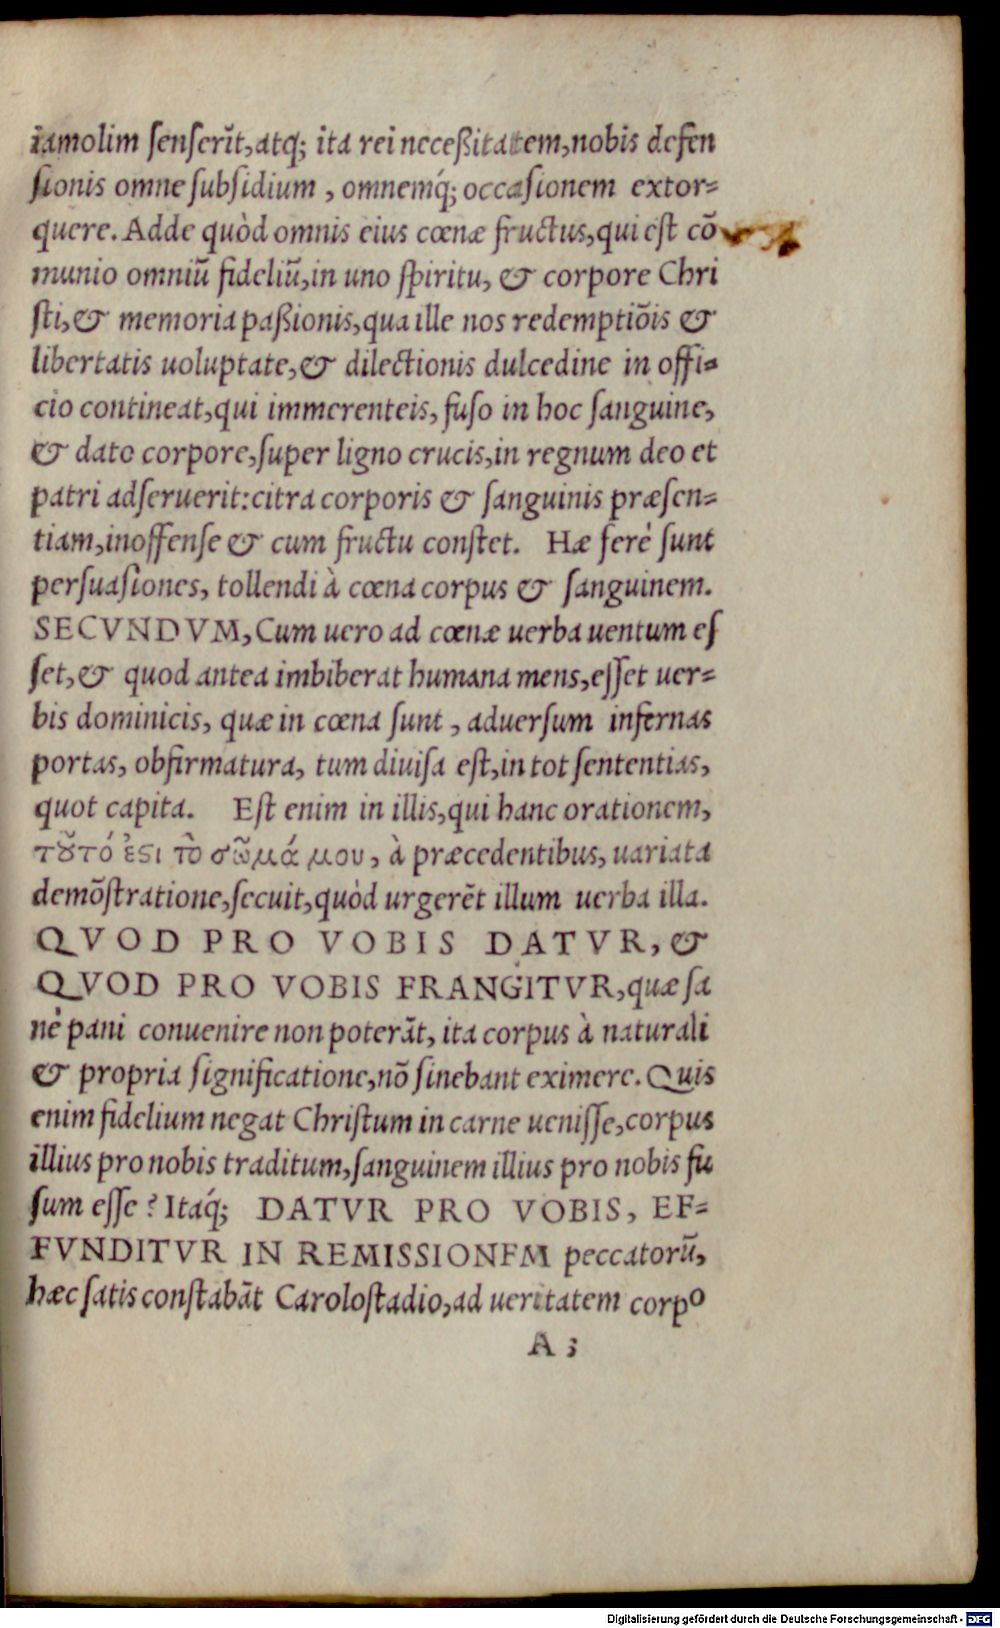 iamolim ſenſerīt,atq; ita rei neceßitatem,nobis defen
ſionis omne ſubſidium , omnemq́; occaſionem extor=
quere. Adde quòd omnis eius cœnæ fructus,qui eſt cō
munio omniū fideliū,in uno ſpiritu, & corpore Chri
ſti,& memoria paßionis,qua ille nos redemptiōis &
libertatis uoluptate,& dilectionis dulcedine in offi=
cio contineat,qui immerenteis, fuſo in hoc ſanguine,
& dato corpore,ſuper ligno crucis,in regnum deo et
patri adſeruerit: citra corporis & ſanguinis præſen=
tiam,inoffenſe & cum fructu conſtet. Hæ ferè ſunt
perſuaſiones, tollendi à cœna corpus & ſanguinem.
SECVNDVM, Cum uero ad cœnæ uerba uentum eſ
ſet,& quod antea imbiberat humana mens,eſſet uer=
bis dominicis, quæ in cœna ſunt , aduerſum infernas
portas, obfirmatura, tum diuiſa eſt,in tot ſententias,
quot capita. Eſt enim in illis,qui hanc orationem,
τȣ̃τό ἐϛι τὸ σῶμά μου, à præcedentibus, uariata
demōſtratione,ſecuit,quòd urgerēt illum uerba illa.
QVOD PRO VOBIS DATVR, &
QVOD PRO VOBIS FRANGITVR,quæ ſa
nè pani conuenire non poterāt, ita corpus à naturali
& propria ſignificatione,nō ſinebant eximere. Quis
enim fidelium negat Chriſtum in carne ueniſſe,corpus
illius pro nobis traditum,ſanguinem illius pro nobis fu
ſum eſſe ? Itaq́; DATVR PRO VOBIS, EF=
FVNDITVR IN REMISSIONEM peccatorū,
hæc ſatis conſtabāt Caroloſtadio,ad ueritatem corpo
A 3
Digitalisierung gefördert durch die Deutsche Forschungsgemeinschaft - DFG